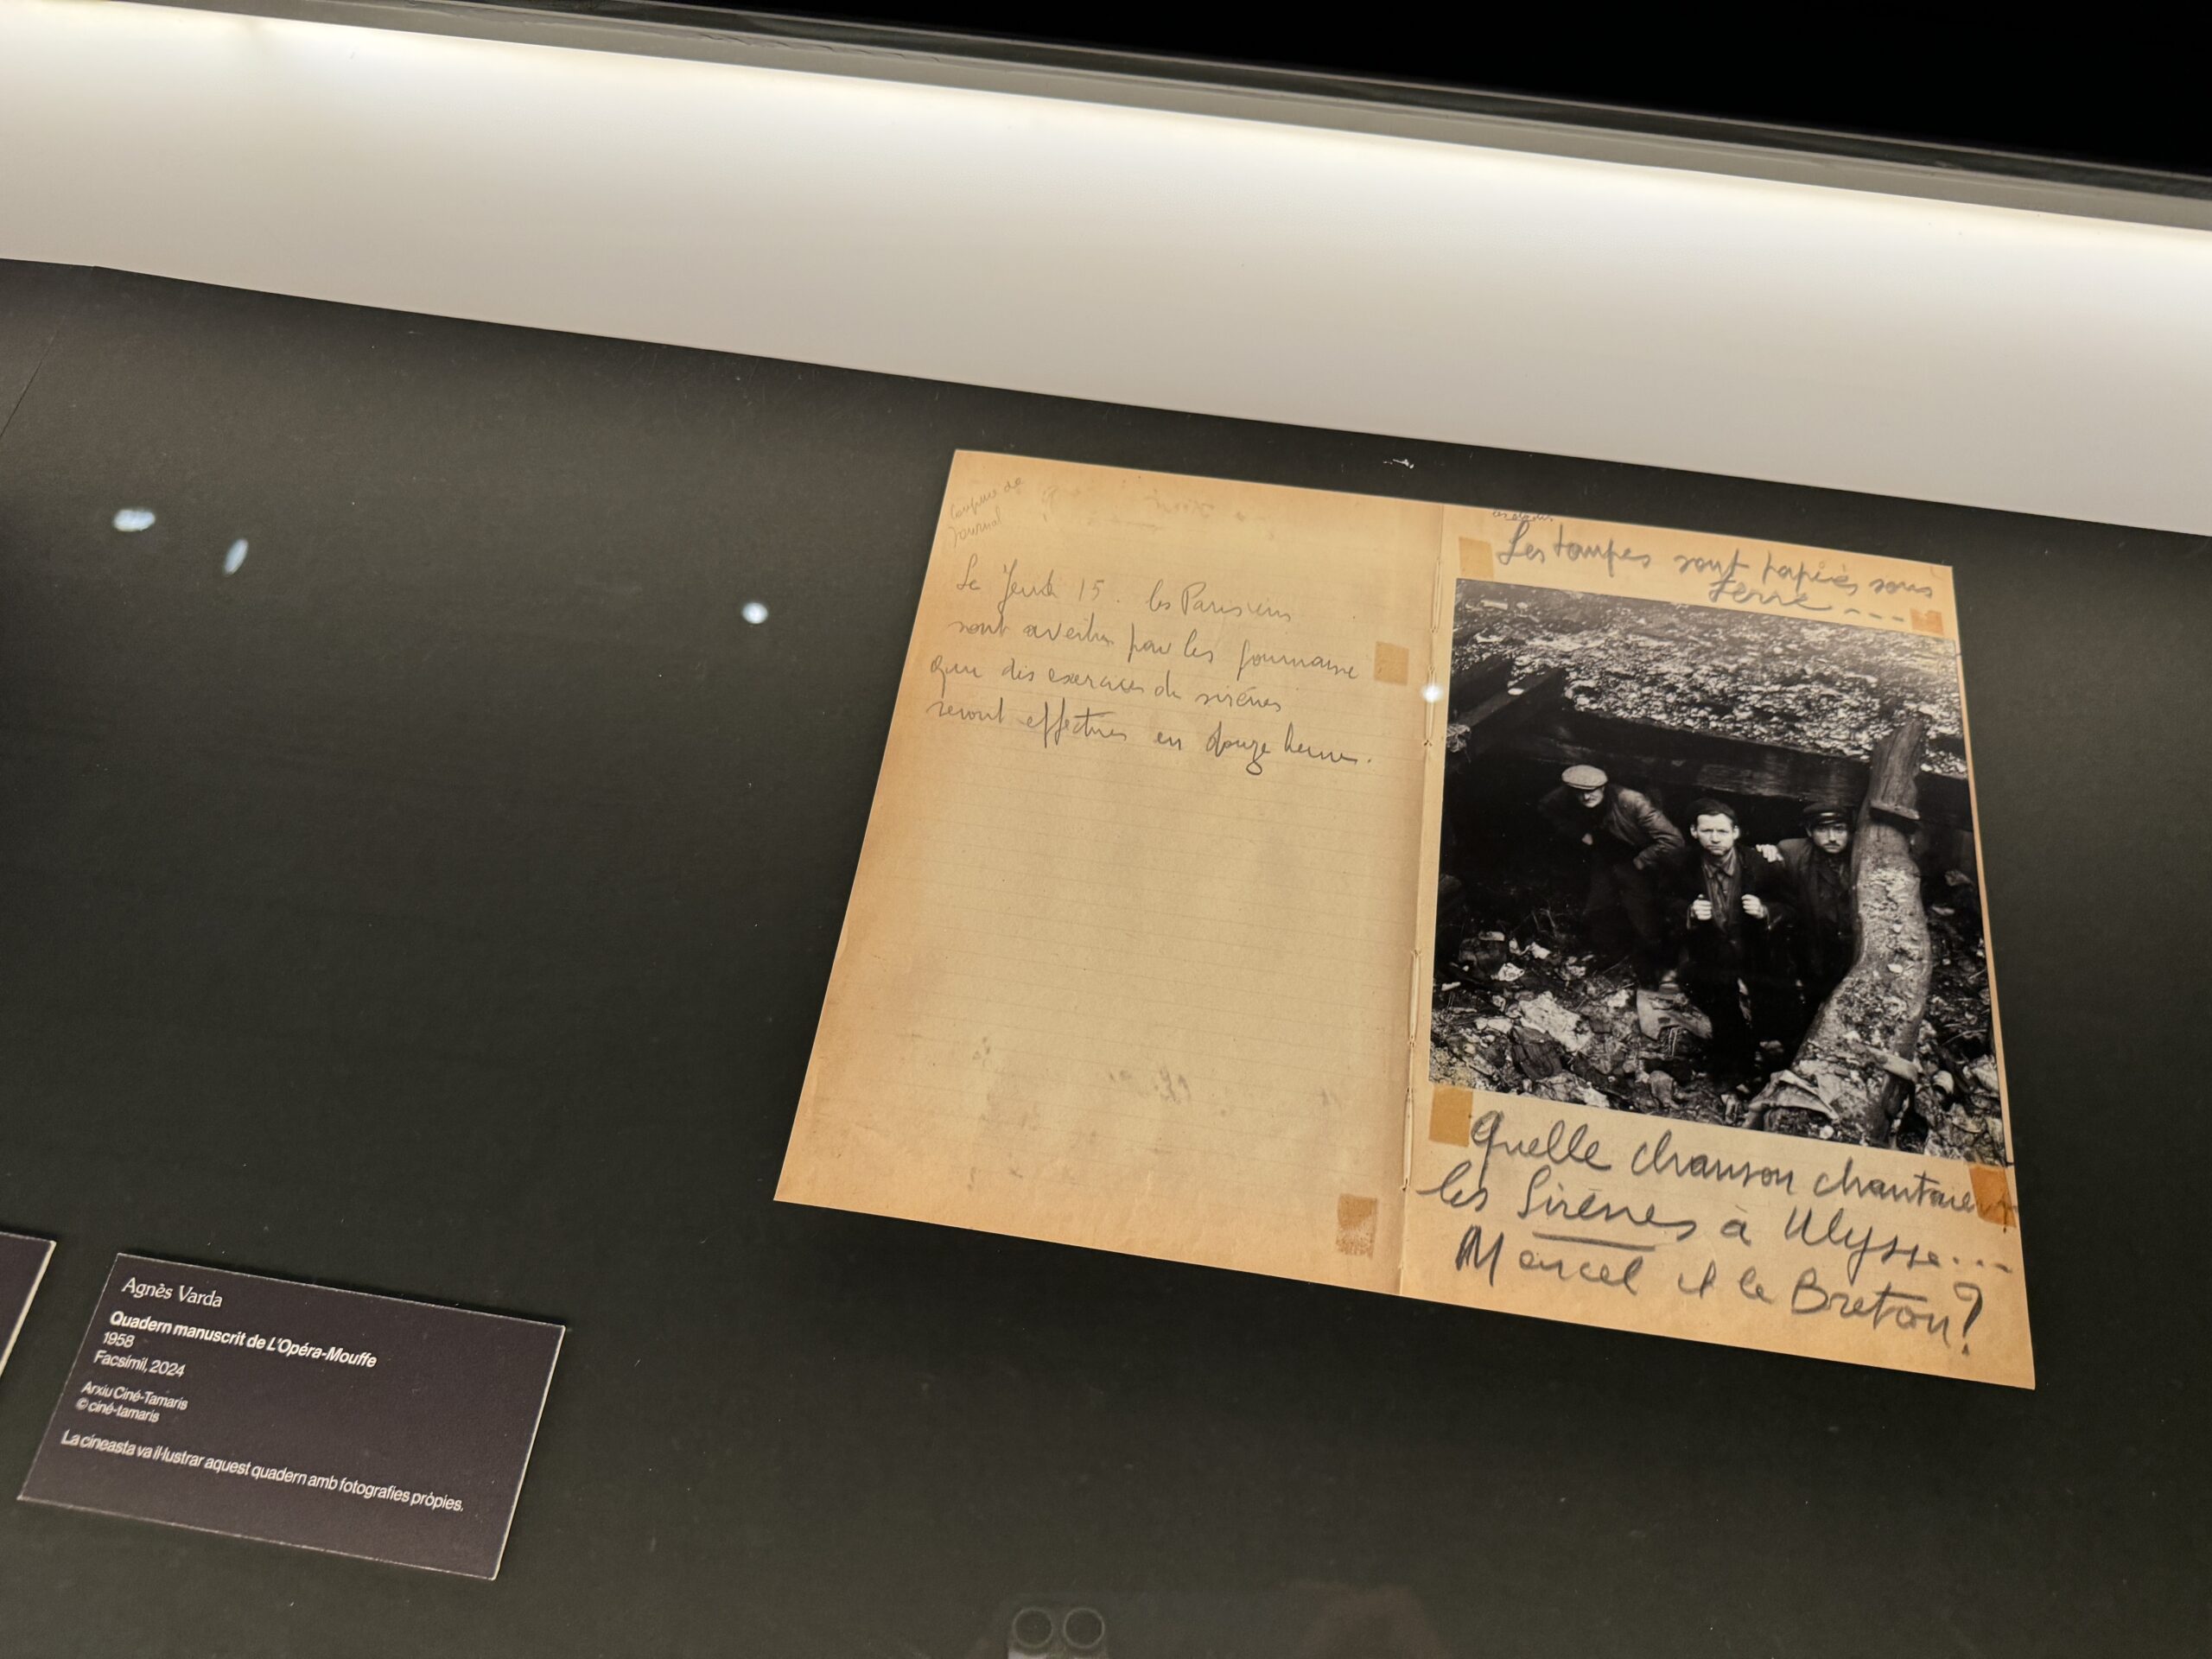 coupure de
journal
Le Jeudi 15. les Parisiens
sont avertis par les journaux
que des exercices de sirènes
seront effectués en douze heures.
Les taupes sont tapies sous
terre - - - -
Quelle chanson chantaient
les Sirènes à Ulysse...
Marcel et le Breton?
Agnès Varda
Quadern manuscrit de L'Opéra-Mouffe
1958
Facsímil, 2024
Arxiu Ciné-Tamaris
© ciné-tamaris
La cineasta va il·lustrar aquest quadern amb fotografies pròpies.